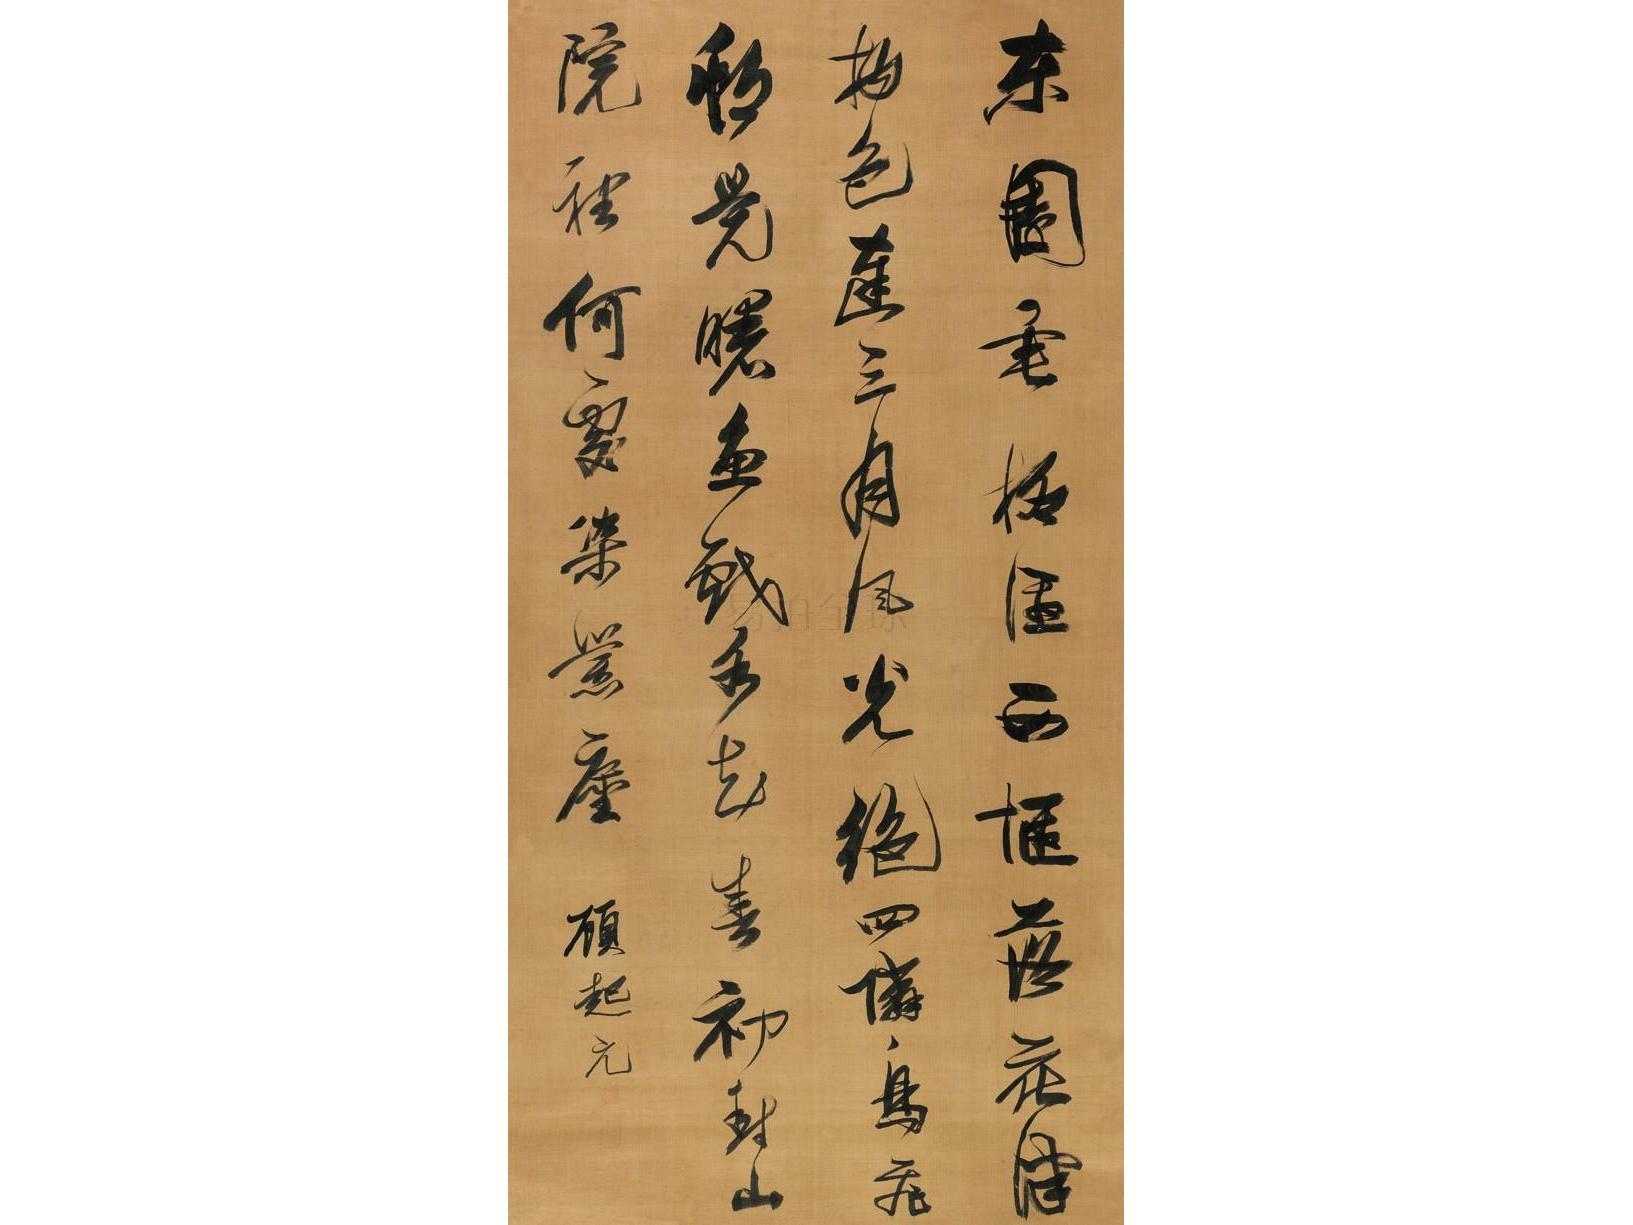 東園垂柳徑西堰落花津
物色連三月風光絕四隣鳥飛
邨覺曙魚戲水知春初晴山
院裡何處染囂塵 顧起元
易拍全球